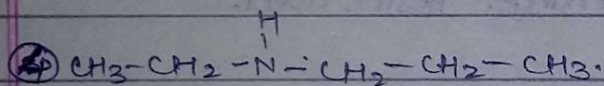 H
CH3-CH2-N-CH2-CH2-CH3.